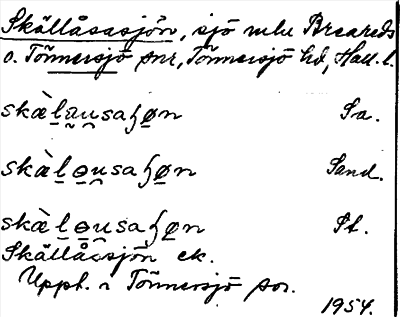 Skällåsasjön, sjö mln Breareds
o. Tönnersjö snr, Tönnersjö hd, Hall. l.
skæ̀l̠a̰ṵsaɧø̠n Sa.
skæ̀l̠o̠ṵsaɧø̠n Sand.
skæ̀l̠ɵ̠ṵsaɧø̠n St.
Skällåssjön ek.
Uppt. i Tönnersjö sn.
1954.